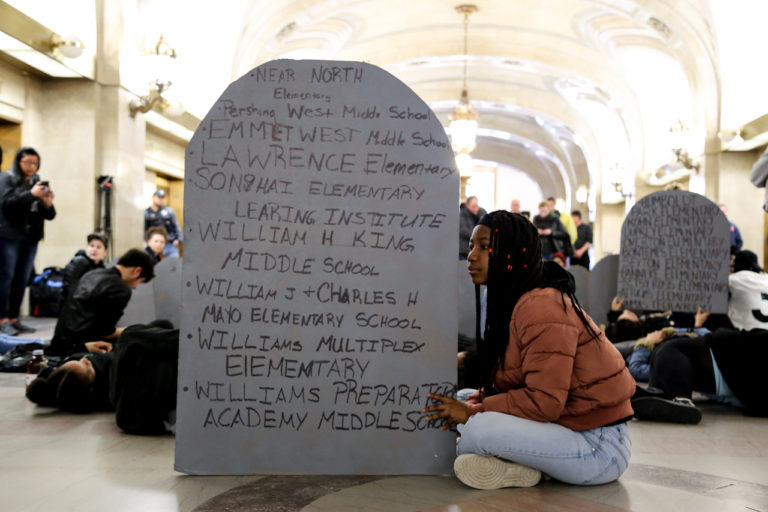 • NEAR NORTH
Elementary
• Pershing West Middle School
• EMMET WEST Middle School
LAWRENCE Elementary
SONGHAI ELEMENTARY
LEARING INSTITUTE
• WILLIAM H KING
MIDDLE SCHOOL
• WILLIAM J + CHARLES H
MAYO ELEMENTARY SCHOOL
• WILLIAMS MULTIPLEX
ELEMENTARY
• WILLIAMS PREPARATOR
ACADEMY MIDDLE SCHO
ELEMENTARY
ELEMENTARY